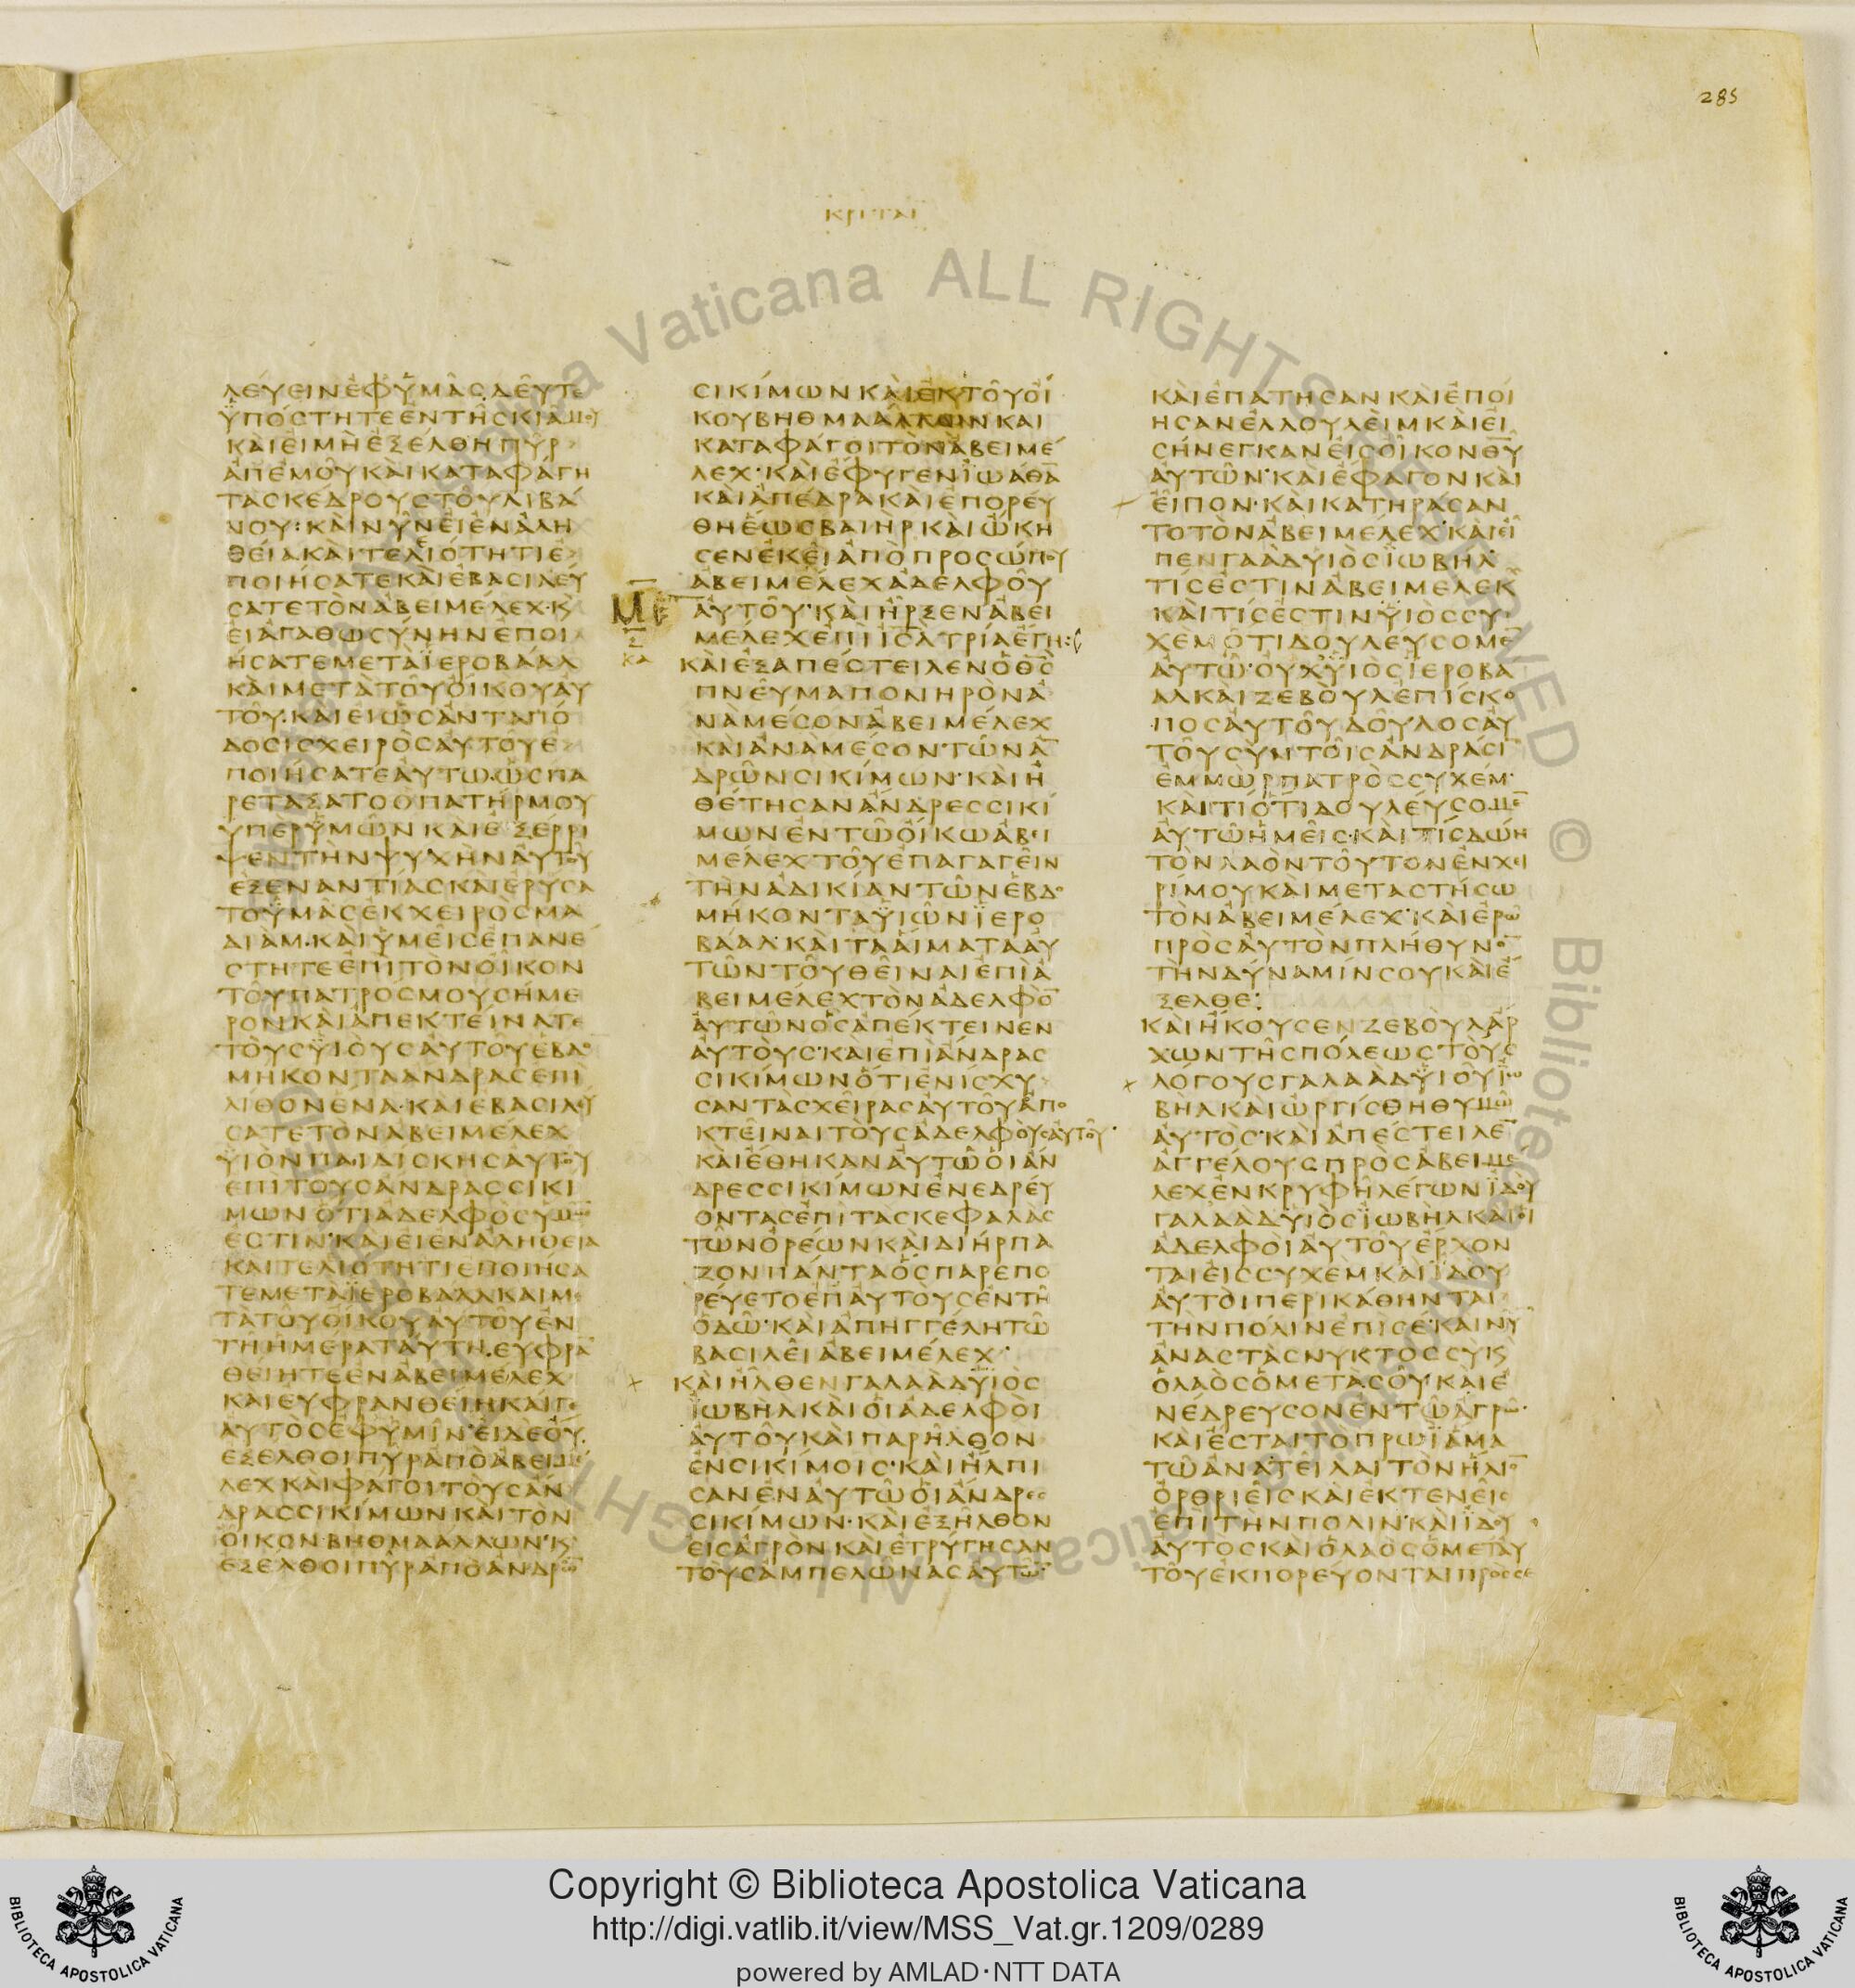 285
ΚΡΙΤΑΙ
ΛΕΥΕΙΝΕΦΥΜΑΣΔΕΥΤΕ
ΫΠΟΣΤΗΤΕΕΝΤΗΣΚΙΑΜΟΥ
ΚΑΙΕΙΜΗΕΞΕΛΘΗΠΥΡ
ΑΠΕΜΟΥΚΑΙΚΑΤΑΦΑΓΗ
ΤΑΣΚΕΔΡΟΥΣΤΟΥΛΙΒΑ
ΝΟΥ:ΚΑΙΝΥΝΕΙΕΝΑΛΗ
ΘΕΙΑΚΑΙΤΕΛΕΙΟΤΗΤΙΕ
ΠΟΙΗΣΑΤΕΚΑΙΕΒΑΣΙΛΕΥ
ΣΑΤΕΤΟΝΑΒΕΙΜΕΛΕΧ·Κ
ΕΙΑΓΑΘΩΣΥΝΗΝΕΠΟΙ
ΗΣΑΤΕΜΕΤΑΪΕΡΟΒΑΑΛ
ΚΑΙΜΕΤΑΤΟΥΟΙΚΟΥΑΥ
ΤΟΥ·ΚΑΙΕΙΩΣΑΝΤΑΠΟ
ΔΟΣΙΣΧΕΙΡΟΣΑΥΤΟΥΕ
ΠΟΙΗΣΑΤΕΑΥΤΩ·ΩΣΠΑ
ΡΕΤΑΞΑΤΟΟΠΑΤΗΡΜΟΥ
ΥΠΕΡΥΜΩΝΚΑΙΕΞΕΡΡΙ
ΨΕΝΤΗΝΨΥΧΗΝΑΥΤΟΥ
ΕΞΕΝΑΝΤΙΑΣΚΑΙΕΡΥΣΑ
ΤΟΫΜΑΣΕΚΧΕΙΡΟΣΜΑ
ΔΙΑΜ·ΚΑΙΥΜΕΙΣΕΠΑΝΕ
ΣΤΗΤΕΕΠΙΤΟΝΟΙΚΟΝ
ΤΟΥΠΑΤΡΟΣΜΟΥΣΗΜΕ
ΡΟΝΚΑΙΑΠΕΚΤΕΙΝΑΤΕ
ΤΟΥΣΫΙΟΥΣΑΥΤΟΥΕΒΔΟ
ΜΗΚΟΝΤΑΑΝΔΡΑΣΕΠΙ
ΛΙΘΟΝΕΝΑ·ΚΑΙΕΒΑΣΙΛΕΥ
ΣΑΤΕΤΟΝΑΒΕΙΜΕΛΕΧ
ΫΙΟΝΠΑΙΔΙΣΚΗΣΑΥΤΟΥ
ΕΠΙΤΟΥΣΑΝΔΡΑΣΣΙΚΙ
ΜΩΝΟΤΙΑΔΕΛΦΟΣΥΜΩ
ΕΣΤΙΝ·ΚΑΙΕΙΕΝΑΛΗΘΕΙΑ
ΚΑΙΤΕΛΙΟΤΗΤΙΕΠΟΙΗΣΑ
ΤΕΜΕΤΑΪΕΡΟΒΑΑΛΚΑΙΜΕ
ΤΑΤΟΥΟΙΚΟΥΑΥΤΟΥΕΝ
ΤΗΗΜΕΡΑΤΑΥΤΗ·ΕΥΦΡΑ
ΘΕΙΗΤΕΕΝΑΒΕΙΜΕΛΕΧ
ΚΑΙΕΥΦΡΑΝΘΕΙΗΚΑΙΓΕ
ΑΥΤΟΣΕΦΥΜΙΝ·ΕΙΔΕΟΥ
ΕΞΕΛΘΟΙΠΥΡΑΠΟΑΒΕΙΜΕ
ΛΕΧΚΑΙΦΑΓΟΙΤΟΥΣΑΝ
ΔΡΑΣΣΙΚΙΜΩΝΚΑΙΤΟΝ
ΟΙΚΟΝ·ΒΗΘΜΑΑΛΛΩΝ·Κ
ΕΞΕΛΘΟΙΠΥΡΑΠΟΑΝΔΡΩ
ΣΙΚΙΜΩΝΚΑΙΕΚΤΟΥΟΙ
ΚΟΥΒΗΘΜΑΑΛΛΩΝΚΑΙ
ΚΑΤΑΦΑΓΟΙΤΟΝΑΒΕΙΜΕ
ΛΕΧ·ΚΑΙΕΦΥΓΕΝΪΩΑΘΑ
ΚΑΙΑΠΕΔΡΑΚΑΙΕΠΟΡΕΥ
ΘΗΕΩΣΒΑΙΗΡΚΑΙΩΚΗ
ΣΕΝΕΚΕΙΑΠΟΠΡΟΣΩΠΟΥ
ΑΒΕΙΜΕΛΕΧΑΔΕΛΦΟΥ
ΑΥΤΟΥ·ΚΑΙΗΡΞΕΝΑΒΕΙ
ΜΕΛΕΧΕΠΙΙΣΛΤΡΙΑΕΤΗ:
ΚΑΙΕΞΑΠΕΣΤΕΙΛΕΝΟΘΣ
ΠΝΕΥΜΑΠΟΝΗΡΟΝΑ
ΝΑΜΕΣΟΝΑΒΕΙΜΕΛΕΧ
ΚΑΙΑΝΑΜΕΣΟΝΤΩΝΑ
ΔΡΩΝΣΙΚΙΜΩΝ·ΚΑΙΗ
ΘΕΤΗΣΑΝΑΝΔΡΕΣΣΙΚΙ
ΜΩΝΕΝΤΩΟΙΚΩΑΒΕΙ
ΜΕΛΕΧΤΟΥΕΠΑΓΑΓΕΙΝ
ΤΗΝΑΔΙΚΙΑΝΤΩΝΕΒΔΟ
ΜΗΚΟΝΤΑΫΙΩΝΪΕΡΟ
ΒΑΑΛ·ΚΑΙΤΑΑΙΜΑΤΑΑΥ
ΤΩΝΤΟΥΘΕΙΝΑΙΕΠΙΑ
ΒΕΙΜΕΛΕΧΤΟΝΑΔΕΛΦΟ
ΑΥΤΩΝΟΣΑΠΕΚΤΕΙΝΕΝ
ΑΥΤΟΥΣ·ΚΑΙΕΠΙΑΝΔΡΑΣ
ΣΙΚΙΜΩΝΟΤΙΕΝΙΣΧΥ
ΣΑΝΤΑΣΧΕΙΡΑΣΑΥΤΟΥΑΠΟ
ΚΤΕΙΝΑΙΤΟΥΣΑΔΕΛΦΟΥΣΑΥΤΟΥ·
ΚΑΙΕΘΗΚΑΝΑΥΤΩΟΙΑΝ
ΔΡΕΣΣΙΚΙΜΩΝΕΝΕΔΡΕΥ
ΟΝΤΑΣΕΠΙΤΑΣΚΕΦΑΛΑΣ
ΤΩΝΟΡΕΩΝΚΑΙΔΙΗΡΠΑ
ΖΟΝΠΑΝΤΑΟΣΠΑΡΕΠΟ
ΡΕΥΕΤΟΕΠΑΥΤΟΥΣΕΝΤΗ
ΟΔΩ·ΚΑΙΑΠΗΓΓΕΛΗΤΩ
ΒΑΣΙΛΕΙΑΒΕΙΜΕΛΕΧ·
ΚΑΙΗΛΘΕΝΓΑΛΑΑΔΫΙΟΣ
ΪΩΒΗΛΚΑΙΟΙΑΔΕΛΦΟΙ
ΑΥΤΟΥΚΑΙΠΑΡΗΛΘΟΝ
ΕΝΣΙΚΙΜΟΙΣ·ΚΑΙΗΛΠΙ
ΣΑΝΕΝΑΥΤΩΟΙΑΝΔΡΕΣ
ΣΙΚΙΜΩΝ·ΚΑΙΕΞΗΛΘΟΝ
ΕΙΣΑΓΡΟΝΚΑΙΕΤΡΥΓΗΣΑΝ
ΤΟΥΣΑΜΠΕΛΩΝΑΣΑΥΤΩ
ΚΑΙΕΠΑΤΗΣΑΝΚΑΙΕΠΟΙ
ΗΣΑΝΕΛΛΟΥΛΕΙΜΚΑΙΕΙ
ΣΗΝΕΓΚΑΝΕΙΣΟΙΚΟΝΘΥ
ΑΥΤΩΝ·ΚΑΙΕΦΑΓΟΝΚΑΙ
ΕΙΠΟΝ·ΚΑΙΚΑΤΗΡΑΣΑΝ
ΤΟΤΟΝΑΒΕΙΜΕΛΕΧ·ΚΑΙΕΙ
ΠΕΝΓΑΑΔΥΙΟΣΪΩΒΗΛ·
ΤΙΣΕΣΤΙΝΑΒΕΙΜΕΛΕΚ
ΚΑΙΤΙΣΕΣΤΙΝΫΙΟΣΣΥ
ΧΕΜΟΤΙΔΟΥΛΕΥΣΟΜΕ
ΑΥΤΩ·ΟΥΧΫΙΟΣΙΕΡΟΒΑ
ΑΛΚΑΙΖΕΒΟΥΛΕΠΙΣΚΟ
ΠΟΣΑΥΤΟΥΔΟΥΛΟΣΑΥ
ΤΟΥΣΥΝΤΟΙΣΑΝΔΡΑΣΙ
ΕΜΜΩΡΠΑΤΡΟΣΣΥΧΕΜ·
ΚΑΙΤΙΟΤΙΔΟΥΛΕΥΣΟΜΕ
ΑΥΤΩΗΜΕΙΣ·ΚΑΙΤΙΣΔΩΗ
ΤΟΝΛΑΟΝΤΟΥΤΟΝΕΝΧΕΙ
ΡΙΜΟΥΚΑΙΜΕΤΑΣΤΗΣΩ
ΤΟΝΑΒΕΙΜΕΛΕΧ·ΚΑΙΕΡΩ
ΠΡΟΣΑΥΤΟΝΠΛΗΘΥΝΟ
ΤΗΝΔΥΝΑΜΙΝΣΟΥΚΑΙΕ
ΞΕΛΘΕ:
ΚΑΙΗΚΟΥΣΕΝΖΕΒΟΥΛΑΡ
ΧΩΝΤΗΣΠΟΛΕΩΣΤΟΥΣ
ΛΟΓΟΥΣΓΑΛΑΑΔΫΙΟΥΪΩ
ΒΗΛΚΑΙΩΡΓΙΣΘΗΘΥΜΩ
ΑΥΤΟΣ·ΚΑΙΑΠΕΣΤΕΙΛΕ
ΑΓΓΕΛΟΥΣΠΡΟΣΑΒΕΙΜΕ
ΛΕΧΕΝΚΡΥΦΗΛΕΓΩΝΪΔΟΥ
ΓΑΛΑΑΔΥΙΟΣΪΩΒΗΛΚΑΙΟΙ
ΑΔΕΛΦΟΙΑΥΤΟΥΕΡΧΟΝ
ΤΑΙΕΙΣΣΥΧΕΜΚΑΙΪΔΟΥ
ΑΥΤΟΙΠΕΡΙΚΑΘΗΝΤΑΙ
ΤΗΝΠΟΛΙΝΕΠΙΣΕ·ΚΑΙΝΥ
ΑΝΑΣΤΑΣΝΥΚΤΟΣΣΥΚ
ΟΛΑΟΣΟΜΕΤΑΣΟΥ·ΚΑΙΕ
ΝΕΔΡΕΥΣΟΝΕΝΤΩΑΓΡΩ·
ΚΑΙΕΣΤΑΙΤΟΠΡΩΪΑΜΑ
ΤΩΑΝΑΤΕΙΛΑΙΤΟΝΗΛΙΟ
ΟΡΘΡΙΕΙΣΚΑΙΕΚΤΕΝΕΙΣ
ΕΠΙΤΗΝΠΟΛΙΝ·ΚΑΙΪΔΟΥ
ΑΥΤΟΣΚΑΙΟΛΑΟΣΟΜΕΤΑΥ
ΤΟΥΕΚΠΟΡΕΥΟΝΤΑΙΠΡΟΣΣΕ
Copyright © Biblioteca Apostolica Vaticana
http://digi.vatlib.it/view/MSS_Vat.gr.1209/0289
powered by AMLAD·NTT DATA
BIBLIOTECA APOSTOLICA VATICANA
BIBLIOTECA APOSTOLICA VATICANA